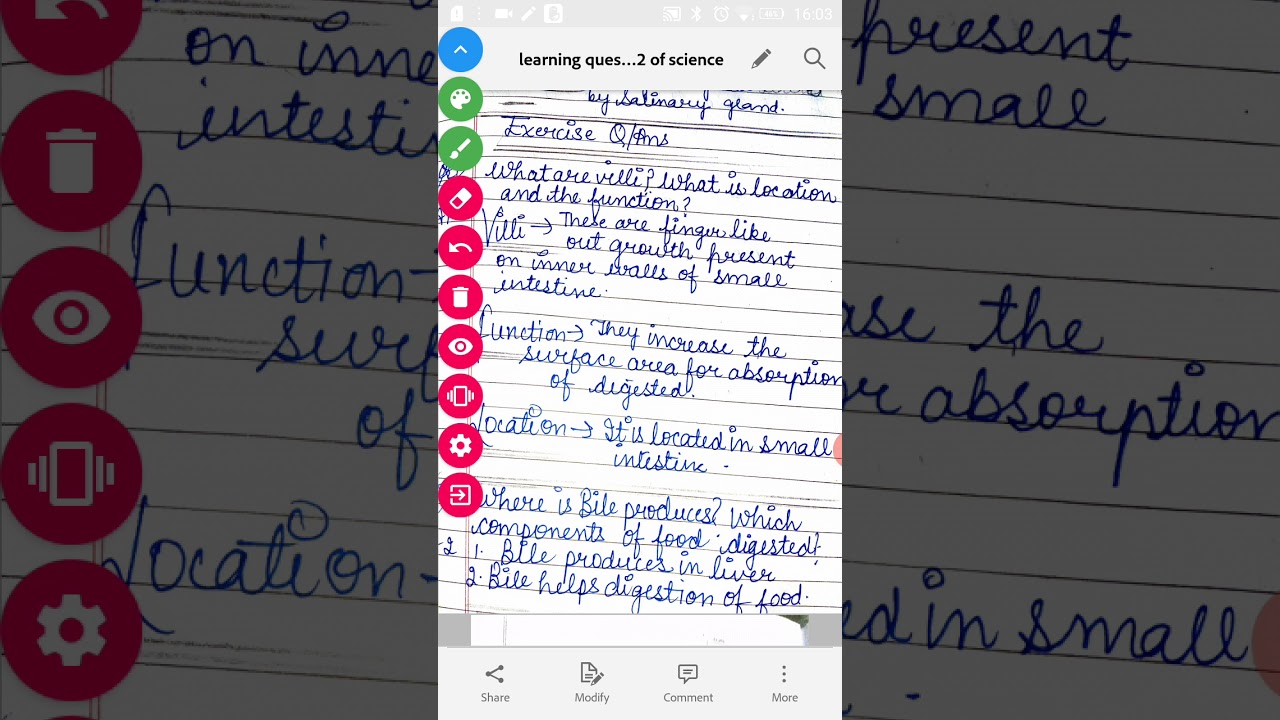 46% 16:03
learning ques...2 of science
by Salinary gland.
Exercise Q/Ans
What are villi? What is location
and the function?
Villi → These are finger like
out growth present
on inner walls of small
intestine.
Function → They increase the
surface area for absorption
of digested.
Location → It is located in small
intestine.
Where is Bile produces? Which
components of food digested?
1. Bile produces in liver
2. Bile helps digestion of food.
Share Modify Comment More
on inne
intestin
Function
sur
of
Location
present
small
ase the
r absorption
ed in small